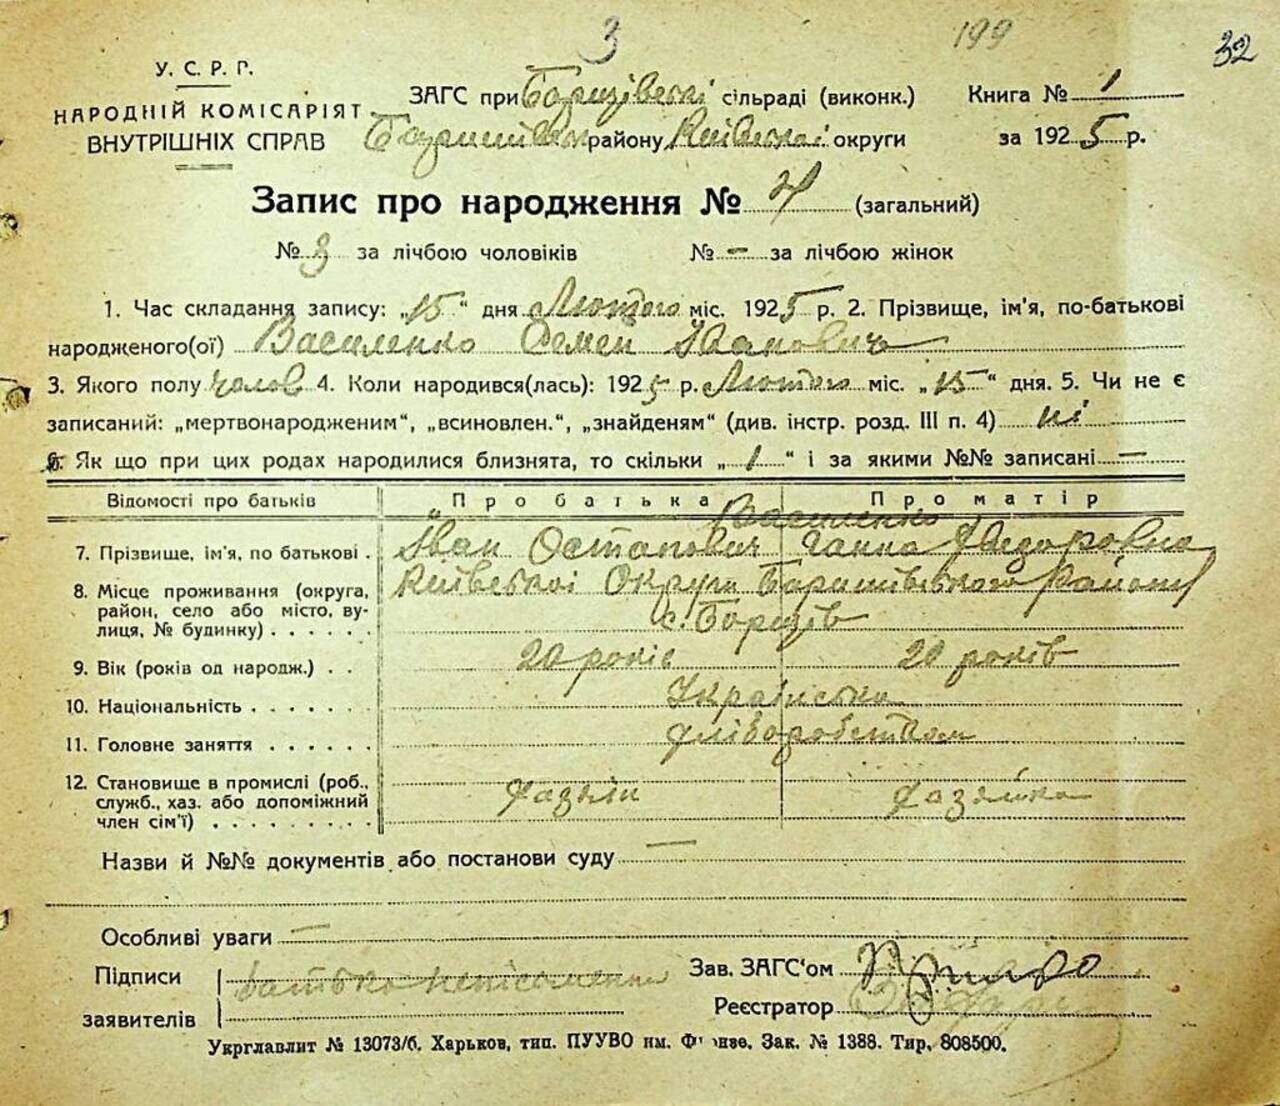 3 199 32
У. С. Р. Р.
НАРОДНІЙ КОМІСАРІЯТ
ВНУТРІШНІХ СПРАВ
ЗАГС при Борщівські сільраді (виконк.) Книга № 1
Баришівськ району Київської округи за 1925 р.
Запис про народження № 4 (загальний)
№ 3 за лічбою чоловіків № – за лічбою жінок
1. Час складання запису: „15“ дня Лютого міс. 1925 р. 2. Прізвище, ім'я, по-батькові
народженого(ої) Василенко Семен Іванович
3. Якого полу чолов 4. Коли народився(лась): 1925 р. Лютого міс. „15“ дня. 5. Чи не є
записаний: „мертвонародженим“, „всиновлен.“, „знайденям“ (див. інстр. розд. III п. 4) ні
6. Як що при цих родах народилися близнята, то скільки „1“ і за якими №№ записані –
Відомості про батьків Про батька Про матір
Василенко
7. Прізвище, ім'я, по батькові . Іван Остапович Ганна Федоровна
8. Місце проживання (округа, район, село або місто, ву-
лиця, № будинку) . . . . . . Київської Округи Баришівського Району
с. Борщів
9. Вік (років од народж.) . . 20 років 20 років
10. Національність . . . . . . . Українська
11. Головне заняття . . . . . . хліборобством
12. Становище в промислі (роб.,
служб., хаз. або допоміжний
член сім'ї) . . . . . . . . . хазяїн хазяйка
Назви й №№ документів або постанови суду –
Особливі уваги –
Підписи батько неписьменни Зав. ЗАГС'ом
заявителів Реєстратор
Укрглавліт № 13073/б. Харьков, тип. ПУУВО им. Фрунзе. Зак. № 1388. Тир. 808500.